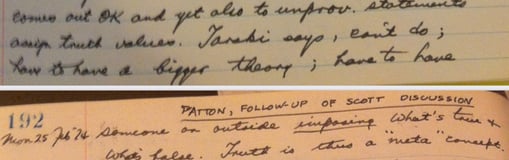 comes out OK and yet also to unprov. statements
assign truth values. Tarski says, can't do;
have to have a bigger theory; have to have
PATTON, FOLLOW-UP OF SCOTT DISCUSSION
192
Mon 25 Feb '74 someone on outside imposing what's true &
what's false. Truth is thus a "meta" concept.